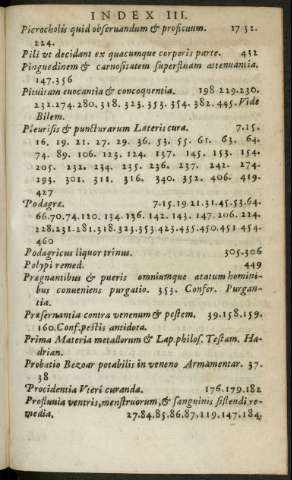 INDEX III.
Picrocholis quid obseruandum & proficuum. 17 32.
224.
Pili vt decidant ex quacumque corporis parte. 432
Pinguedinem & carnositatem superfluam attenuantia.
147.356
Pituitam euocantia & concoquentia. 198 229.230.
232.274.280.318.323.353.354.382.445. Vide
Bilem.
Pleurisis & puncturarum Lateris cura. 7.15.
16. 19. 21. 27. 29. 36. 53. 55. 61. 63. 64.
74. 89. 106. 123. 124. 137. 145. 153. 154.
205. 232. 234. 235. 236. 237. 242. 274.
293. 301. 311. 316. 340. 352. 406. 419.
427
Podagræ. 7.15.19.21.31.45.53.64.
66.70.74.120.134.136.142.143.147.206.224.
228.231.281.318.323.353.423.435.450.451 454.
460
Podagricus liquor trinus. 305.306
Polypi remed. 449
Prægnantibus & pueris omniumque ætatum homini-
bus conueniens purgatio. 353. Confer. Purgan-
tia.
Præseruantia contra venenum & pestem. 39.158.159.
160. Conf. pestis antidota.
Prima Materia metallorum & Lap. philos. Testam. Ha-
drian.
Probatio Bezoar potabilis in veneno Armamentar. 37.
38
Procidentia Vteri curanda. 176.179.182
Profluuia ventris, menstruorum, & sanguinis sistendi re-
media. 27.84.85.86.87.119.147.184.